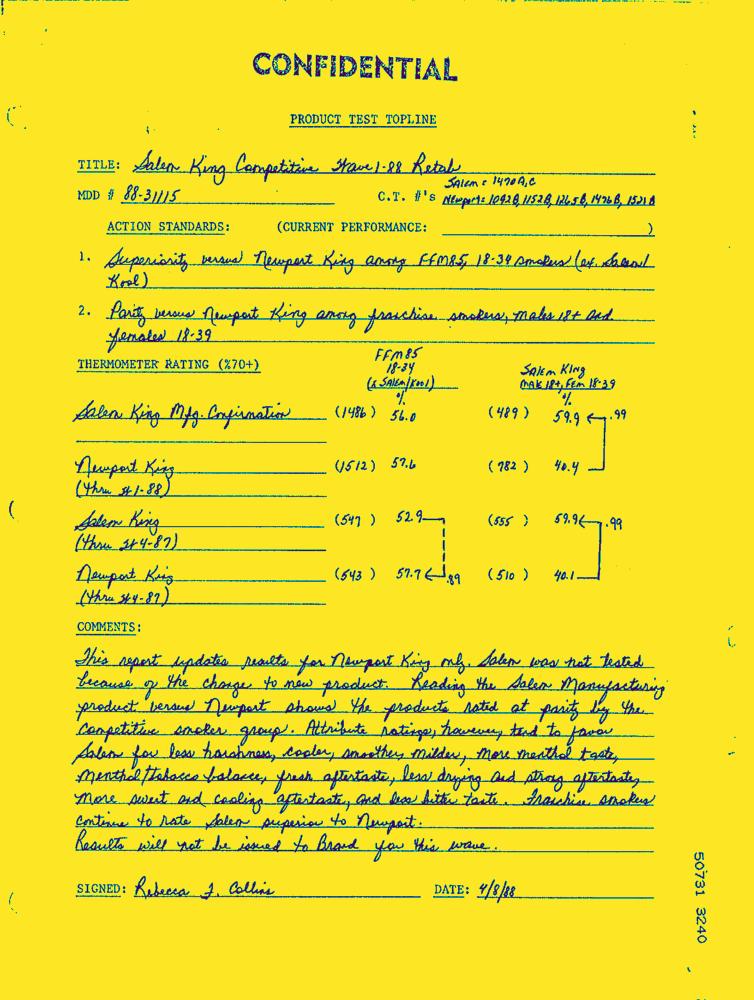 CONFIDENTIAL
PRODUCT TEST TOPLINE
TITLE: Salem King Competitive Wave 1-88 Retab
MDD # 88-31115 C.T. #'s Salem: 1470A,C
Newport: 1092B, 1152B, 1265B, 1476B, 1521B
ACTION STANDARDS: (CURRENT PERFORMANCE: )
1. Superiority versus Newport King among FFM85, 18-34 smokers (ex. Salem/
Kool)
2. Parity versus Newport King among franchise smokers, males 18+ and
females 18-39
THERMOMETER RATING (%70+) FFM85 18-34 (x Salem/Kool) % Salem King Male 18+, Fem 18-39 %
Salem King Mfg. Confirmation (1486) 56.0 (489) 59.9 .99
Newport King (1512) 57.6 (782) 40.4
(thru #1-88)
Salem King (547) 52.9 (555) 59.9 .99
(thru #4-87)
Newport King (543) 57.7 .89 (510) 40.1
(thru #4-87)
COMMENTS:
This report updates results for Newport King only. Salem was not tested
because of the change to new product. Reading the Salem Manufacturing
product versus Newport shows the products rated at parity by the
competitive smoker group. Attribute ratings, however, tend to favor
Salem for less harshness, cooler, smoother, milder, more menthol taste,
menthol/tobacco balance, fresh aftertaste, less drying and strong aftertaste,
more sweet and cooling aftertaste, and less bitter taste. Franchise smokers
continue to rate Salem superior to Newport.
Results will not be issued to Brand for this wave.
SIGNED: Rebecca J. Collins DATE: 4/8/88
50731 3240